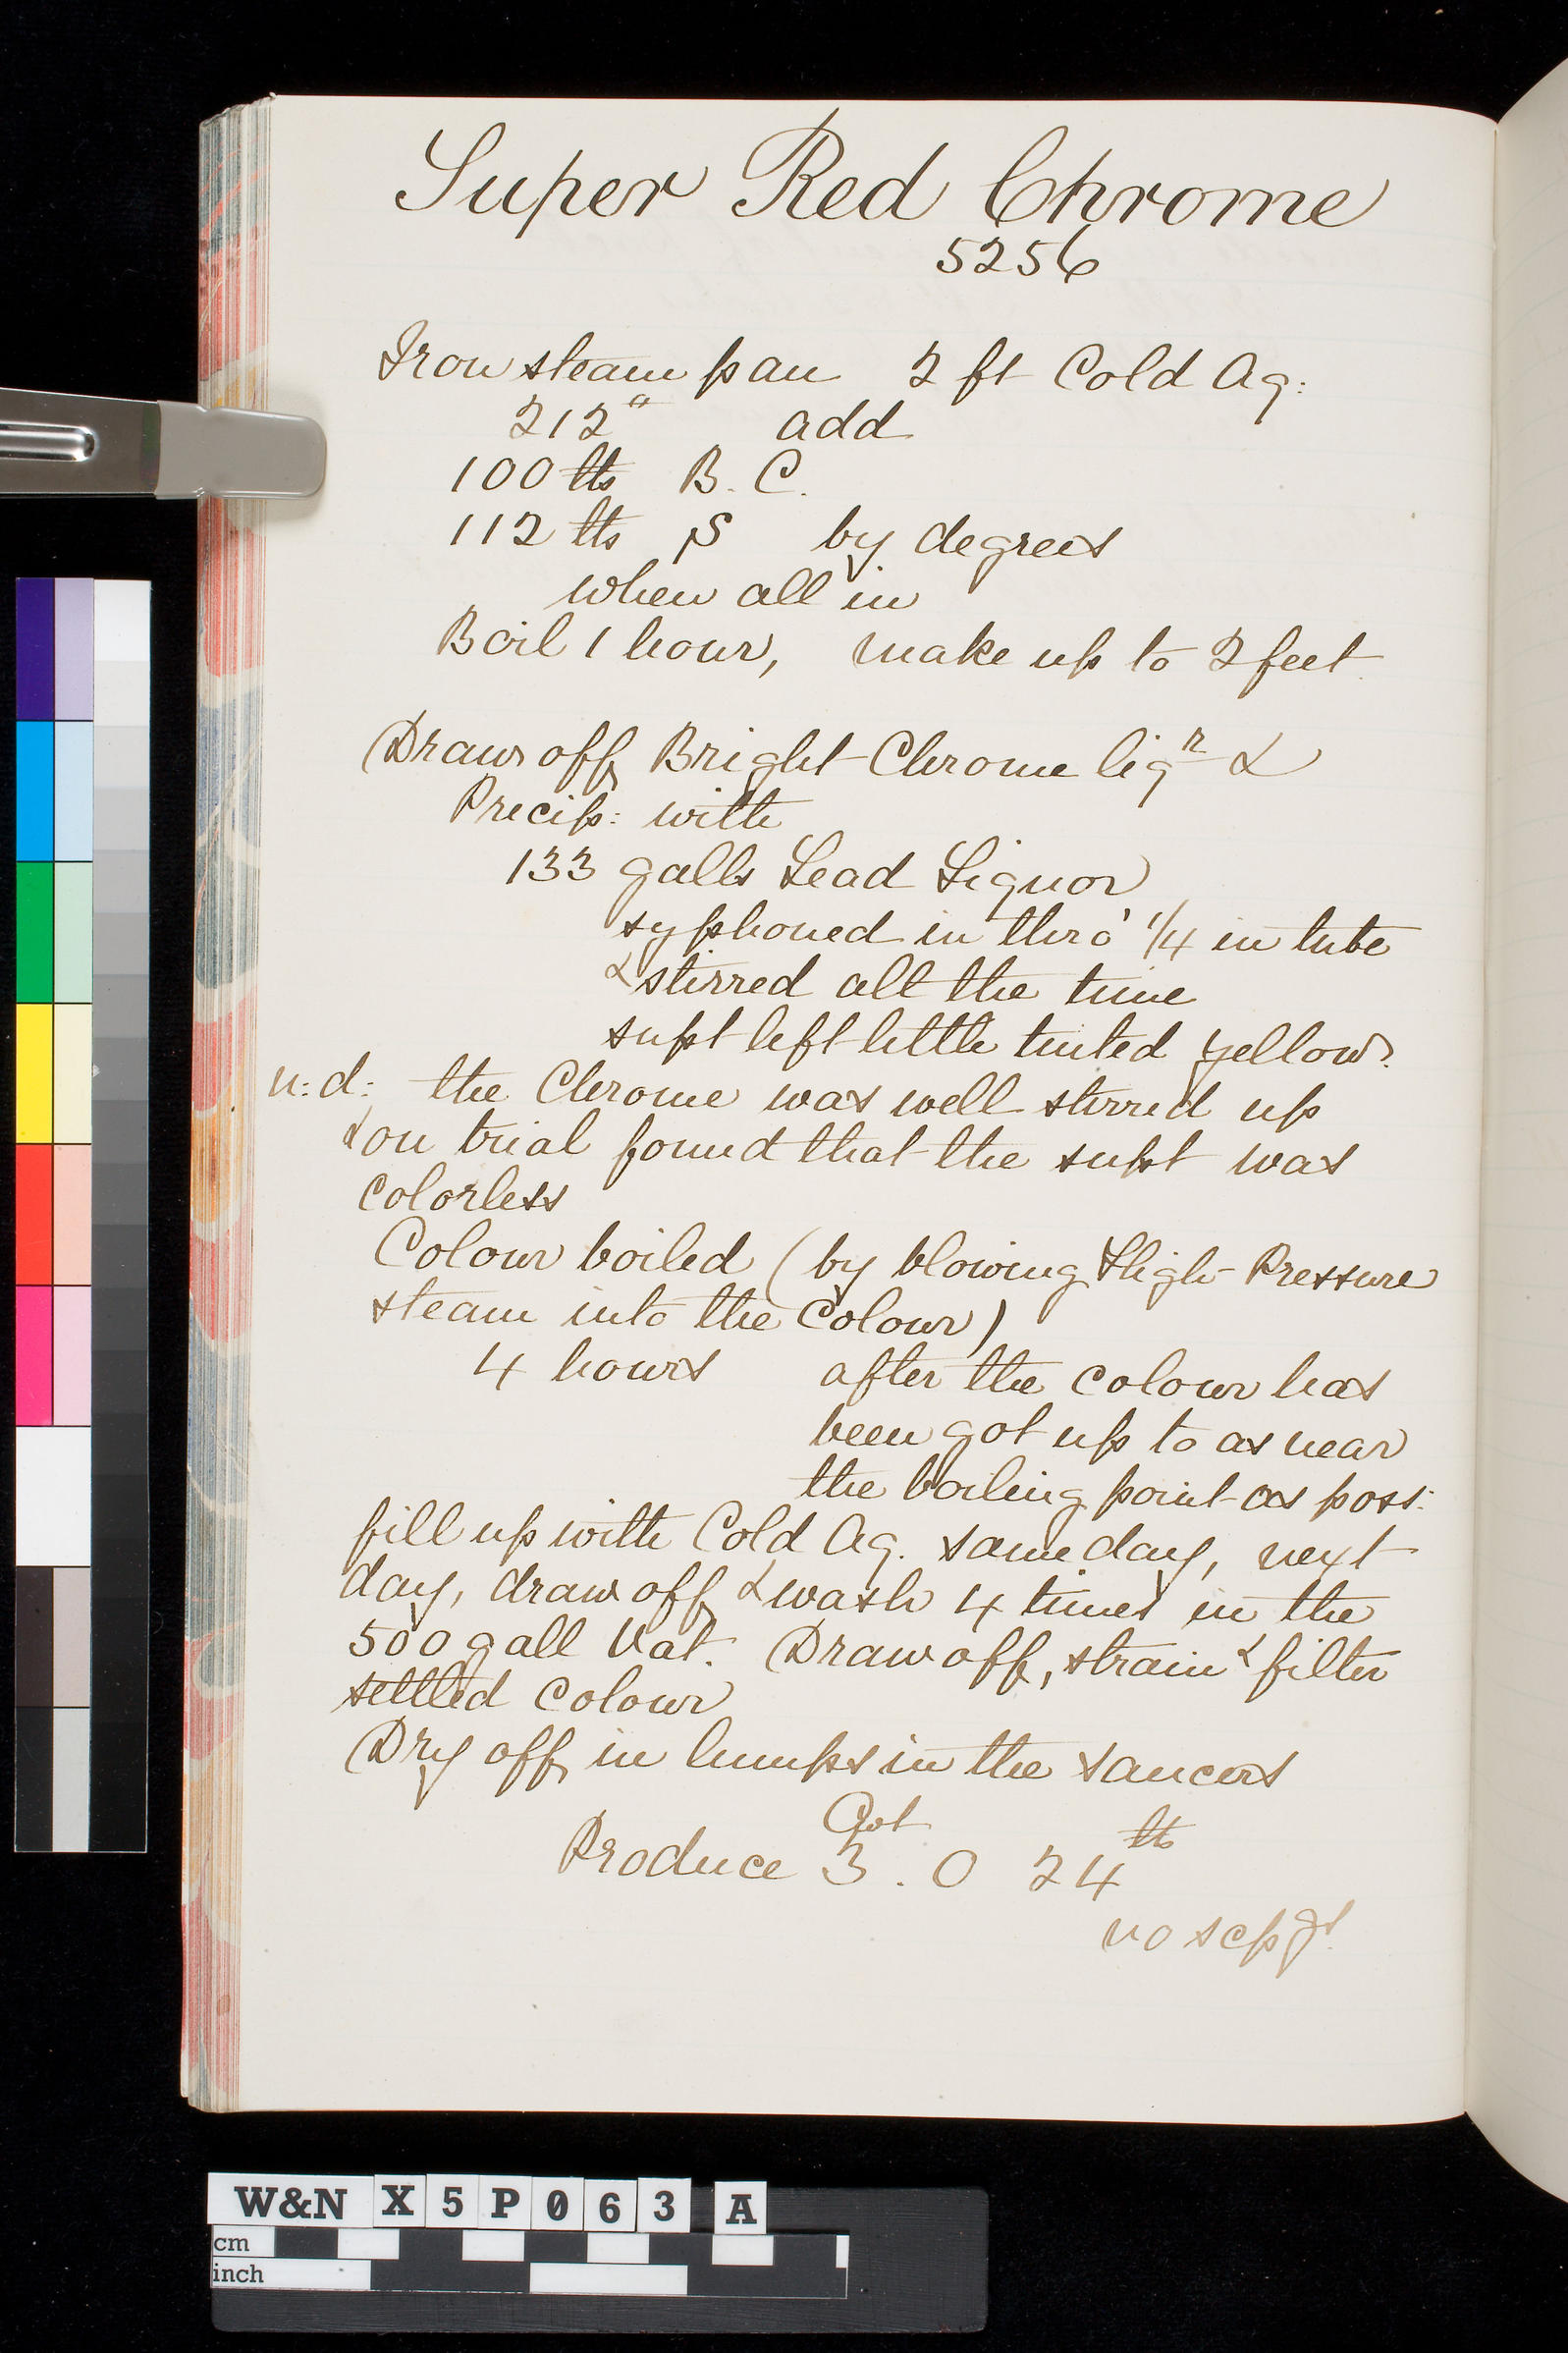 Super Red Chrome
5256
Iron steam pan 2 ft Cold Aq:
212° add
100 lbs B. C.
112 lbs S by degrees
when all in
Boil 1 hour, make up to 2 feet
Draw off Bright Chrome liqr &
Precip: with
133 galls Lead Liquor
syphoned in thro' 1/4 in tube
& stirred all the time
supt left little tinted yellow.
n:d: the Chrome was well stirred up
& on trial found that the supt was
colorless
Colour boiled (by blowing High Pressure
steam into the Colour)
4 hours after the colour has
been got up to as near
the boiling point as poss:
fill up with Cold Aq. same day, next
day, draw off & wash 4 times in the
500 gall Vat. Draw off, strain & filter
settled colour
Dry off in lumps in the saucers
Cwt lbs
Produce 3 . 0 24
no scpgs.
W&N X5P063 A
cm
inch